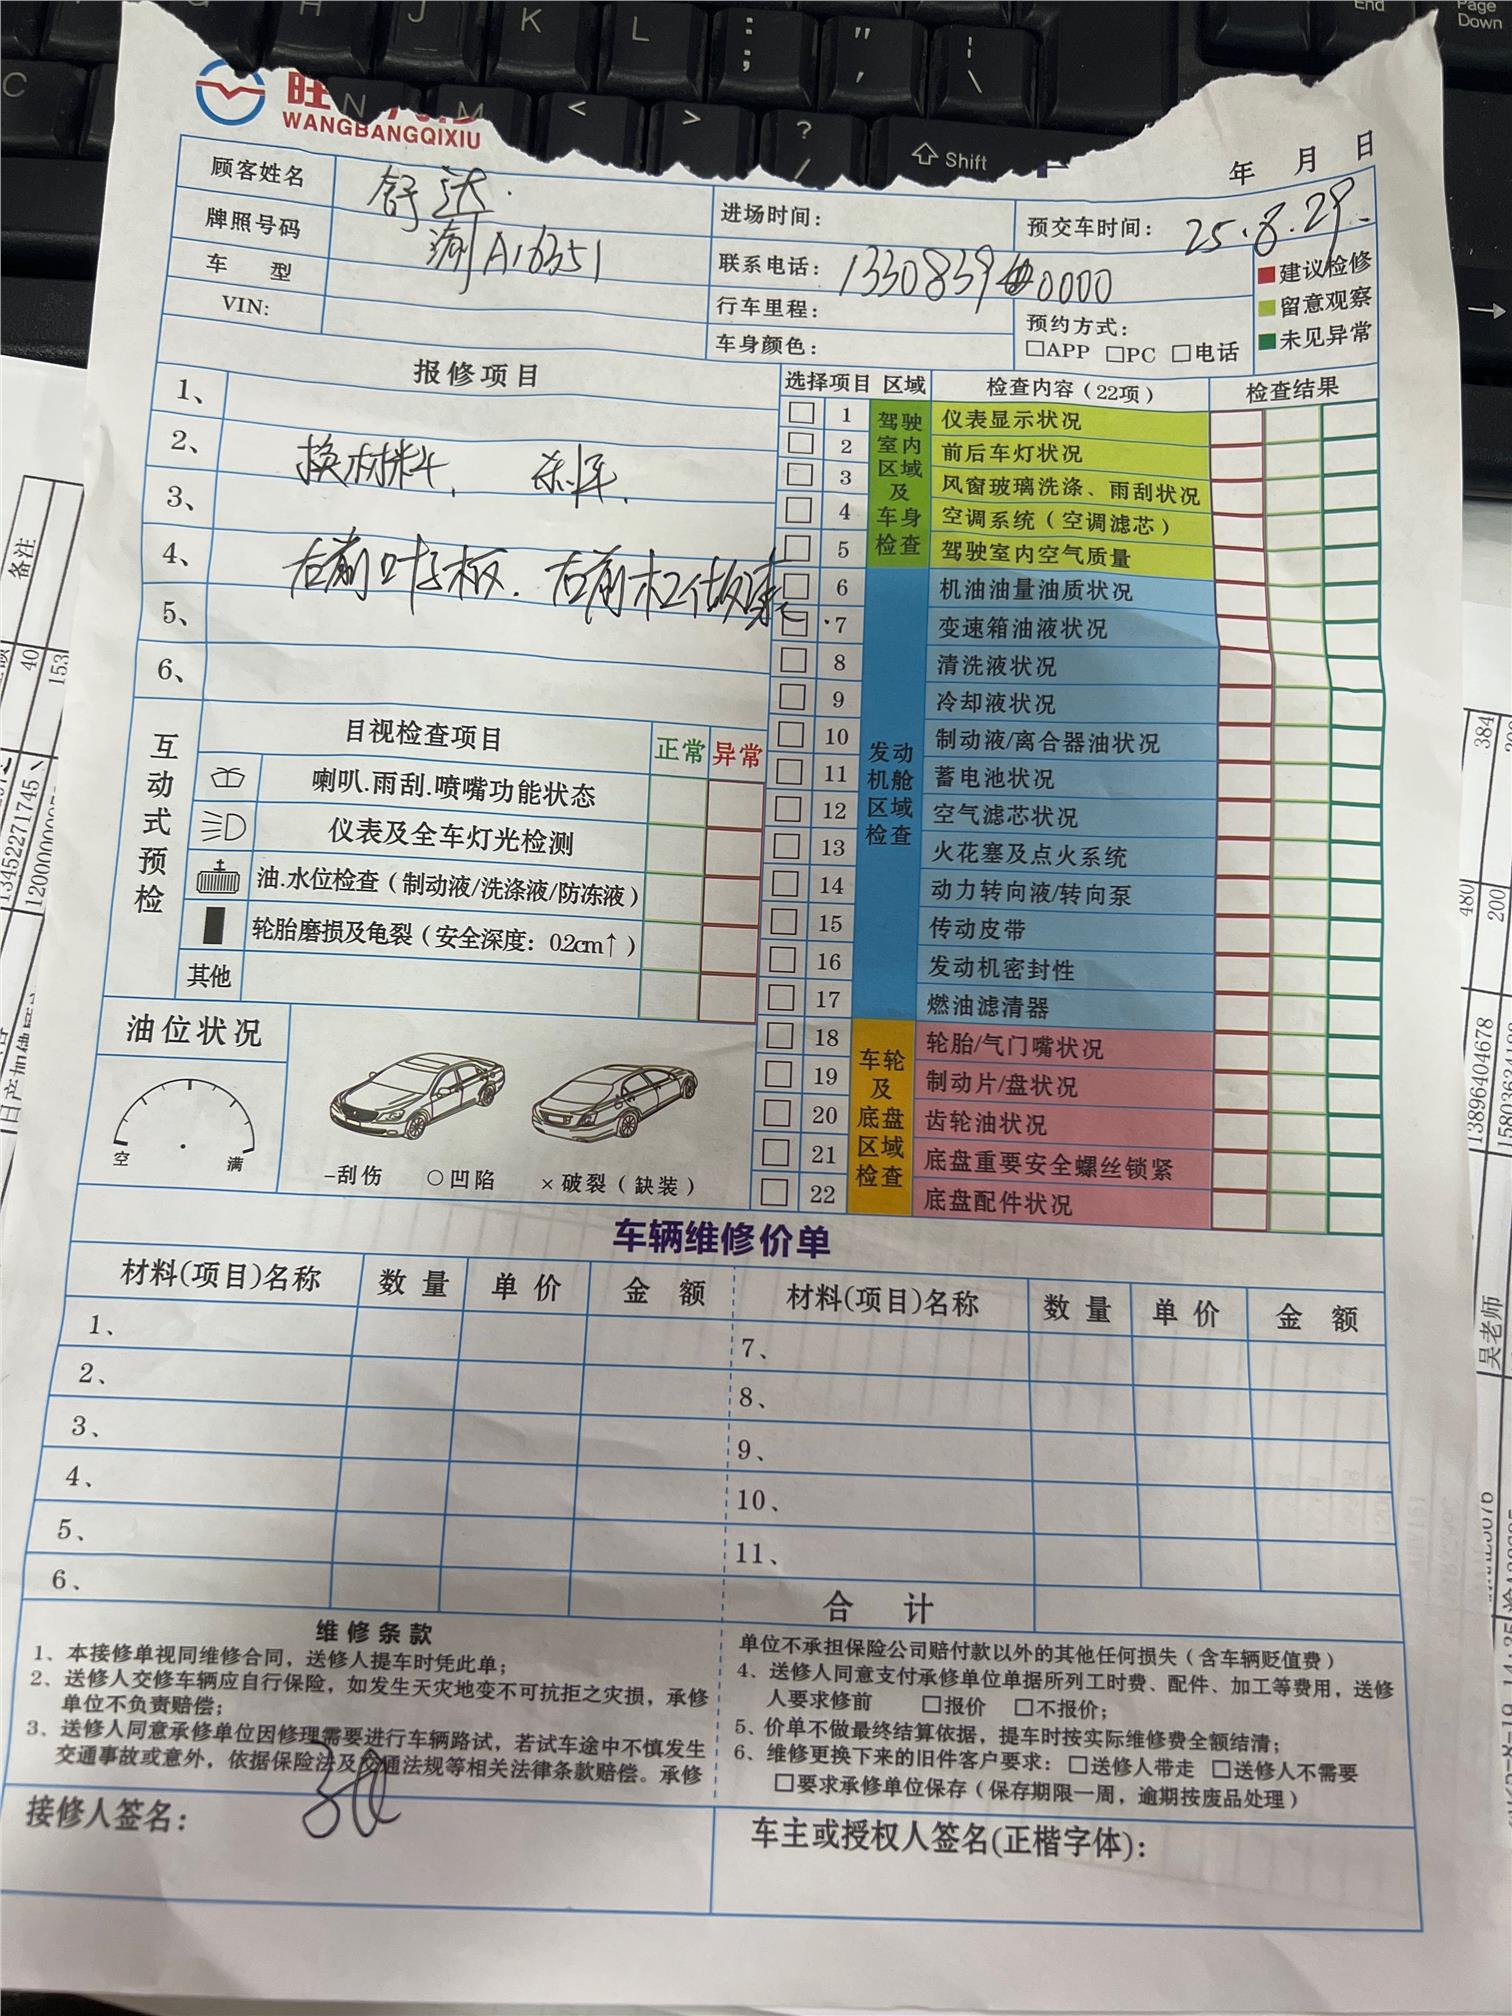 旺
WANGBANGQIXIU
年 月 日
顾客姓名 舒达
进场时间: 预交车时间: 25.8.29.
牌照号码 A16351
联系电话: 1330839 0000
车 型
行车里程:
预约方式:
□APP □PC □电话
VIN:
车身颜色:
建议检修
留意观察
未见异常
报修项目
1、
2、 换材料、
3、
4、 右前叶子板. 右前杠做漆
5、
6、
选择项目 区域 检查内容（22项） 检查结果
驾驶室内区域及车身检查
1 仪表显示状况
2 前后车灯状况
3 风窗玻璃洗涤、雨刮状况
4 空调系统（空调滤芯）
5 驾驶室内空气质量
发动机舱区域检查
6 机油油量油质状况
7 变速箱油液状况
8 清洗液状况
9 冷却液状况
10 制动液/离合器油状况
11 蓄电池状况
12 空气滤芯状况
13 火花塞及点火系统
14 动力转向液/转向泵
15 传动皮带
16 发动机密封性
17 燃油滤清器
车轮及底盘区域检查
18 轮胎/气门嘴状况
19 制动片/盘状况
20 齿轮油状况
21 底盘重要安全螺丝锁紧
22 底盘配件状况
互动式预检
目视检查项目 正常 异常
喇叭.雨刮.喷嘴功能状态
仪表及全车灯光检测
油.水位检查（制动液/洗涤液/防冻液）
轮胎磨损及龟裂（安全深度：0.2cm↑）
其他
油位状况
空 满
–刮伤 ○凹陷 ×破裂（缺装）
车辆维修价单
材料(项目)名称 数量 单价 金额 材料(项目)名称 数量 单价 金额
1、 7、
2、 8、
3、 9、
4、 10、
5、 11、
6、 合 计
维修条款
1、本接修单视同维修合同，送修人提车时凭此单；
2、送修人交修车辆应自行保险，如发生天灾地变不可抗拒之灾损，承修
单位不负责赔偿；
3、送修人同意承修单位因修理需要进行车辆路试，若试车途中不慎发生
交通事故或意外，依据保险法及交通法规等相关法律条款赔偿。承修
单位不承担保险公司赔付款以外的其他任何损失（含车辆贬值费）
4、送修人同意支付承修单位单据所列工时费、配件、加工等费用，送修
人要求修前 □报价 □不报价；
5、价单不做最终结算依据，提车时按实际维修费全额结清；
6、维修更换下来的旧件客户要求：□送修人带走 □送修人不需要
□要求承修单位保存（保存期限一周，逾期按废品处理）
接修人签名：
车主或授权人签名(正楷字体)：
备注
40
153
13452271745
384
480
200
13896404678
吴老师
C
J
K
L
N
M
Shift
End
Page
Down